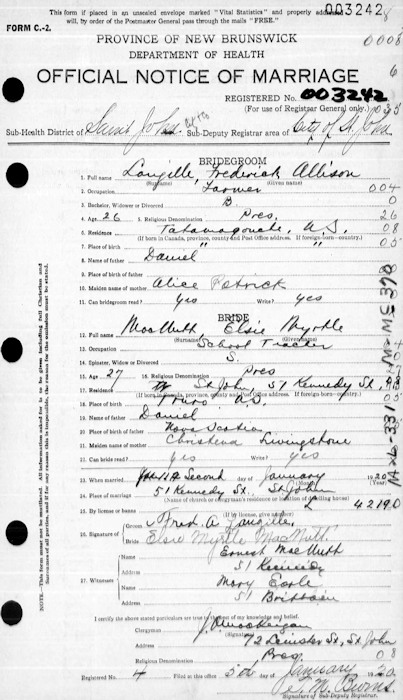 This form if placed in an unsealed envelope marked "Vital Statistics" and properly addressed
will, by order of the Postmaster General pass through the mails "FREE."
003242
FORM C.-2.
PROVINCE OF NEW BRUNSWICK
DEPARTMENT OF HEALTH
OFFICIAL NOTICE OF MARRIAGE
REGISTERED No. 003242
(For use of Registrar General only)
Sub-Health District of Saint John Sub-Deputy Registrar area of City of St. John
BRIDEGROOM
1. Full name Langille, Frederick Allison
(Surname) (Given name)
2. Occupation Farmer 004
3. Bachelor, Widower or Divorced B. 0
4. Age 26 5. Religious Denomination Pres. 26
6. Residence Tatamagouche, N.S. 08
(If born in Canada, province, county and Post Office address. If foreign-born—country.)
7. Place of birth " " " 05
8. Name of father Daniel
9. Place of birth of father
10. Maiden name of mother Alice Patrick
11. Can bridegroom read? yes Write? yes
BRIDE
12. Full name MacNutt, Elsie Myrtle
(Surname) (Given name)
13. Occupation School Teacher
14. Spinster, Widow or Divorced S.
15. Age 27 16. Religious Denomination Pres
17. Residence St John, 51 Kennedy St.
(If born in Canada, province, county and Post Office address. If foreign-born—country.)
18. Place of birth Truro N.S.
19. Name of father Daniel
20. Place of birth of father Nova Scotia
21. Maiden name of mother Christena Livingstone
22. Can bride read? yes Write? yes
23. When married Second day of January 1920
24. Place of marriage 51 Kennedy St. St John
(Name of church or clergyman's residence or number of dwelling house)
25. By license or banns L 42190
(If by license, give number)
26. Signature of Groom Fred. A. Langille
Bride Elsie Myrtle MacNutt
27. Witnesses
Name Ernest MacNutt
Address 51 Kennedy
Name Mary Earle
Address 51 Brittain
I certify the above stated particulars are true to the best of my knowledge and belief.
Clergyman
(Signature)
Address 72 Leinster St., St John
Religious Denomination Pres. 08
Registered No. 4 Filed at this office 5th day of January 1920
Burns
Signature of Sub-Deputy Registrar.
NOTE.—This form must not be mutilated. All information asked for is to be given including full Christian and
Surnames of all parties, and if for any reason this is impossible, the reason for the omission must be stated.